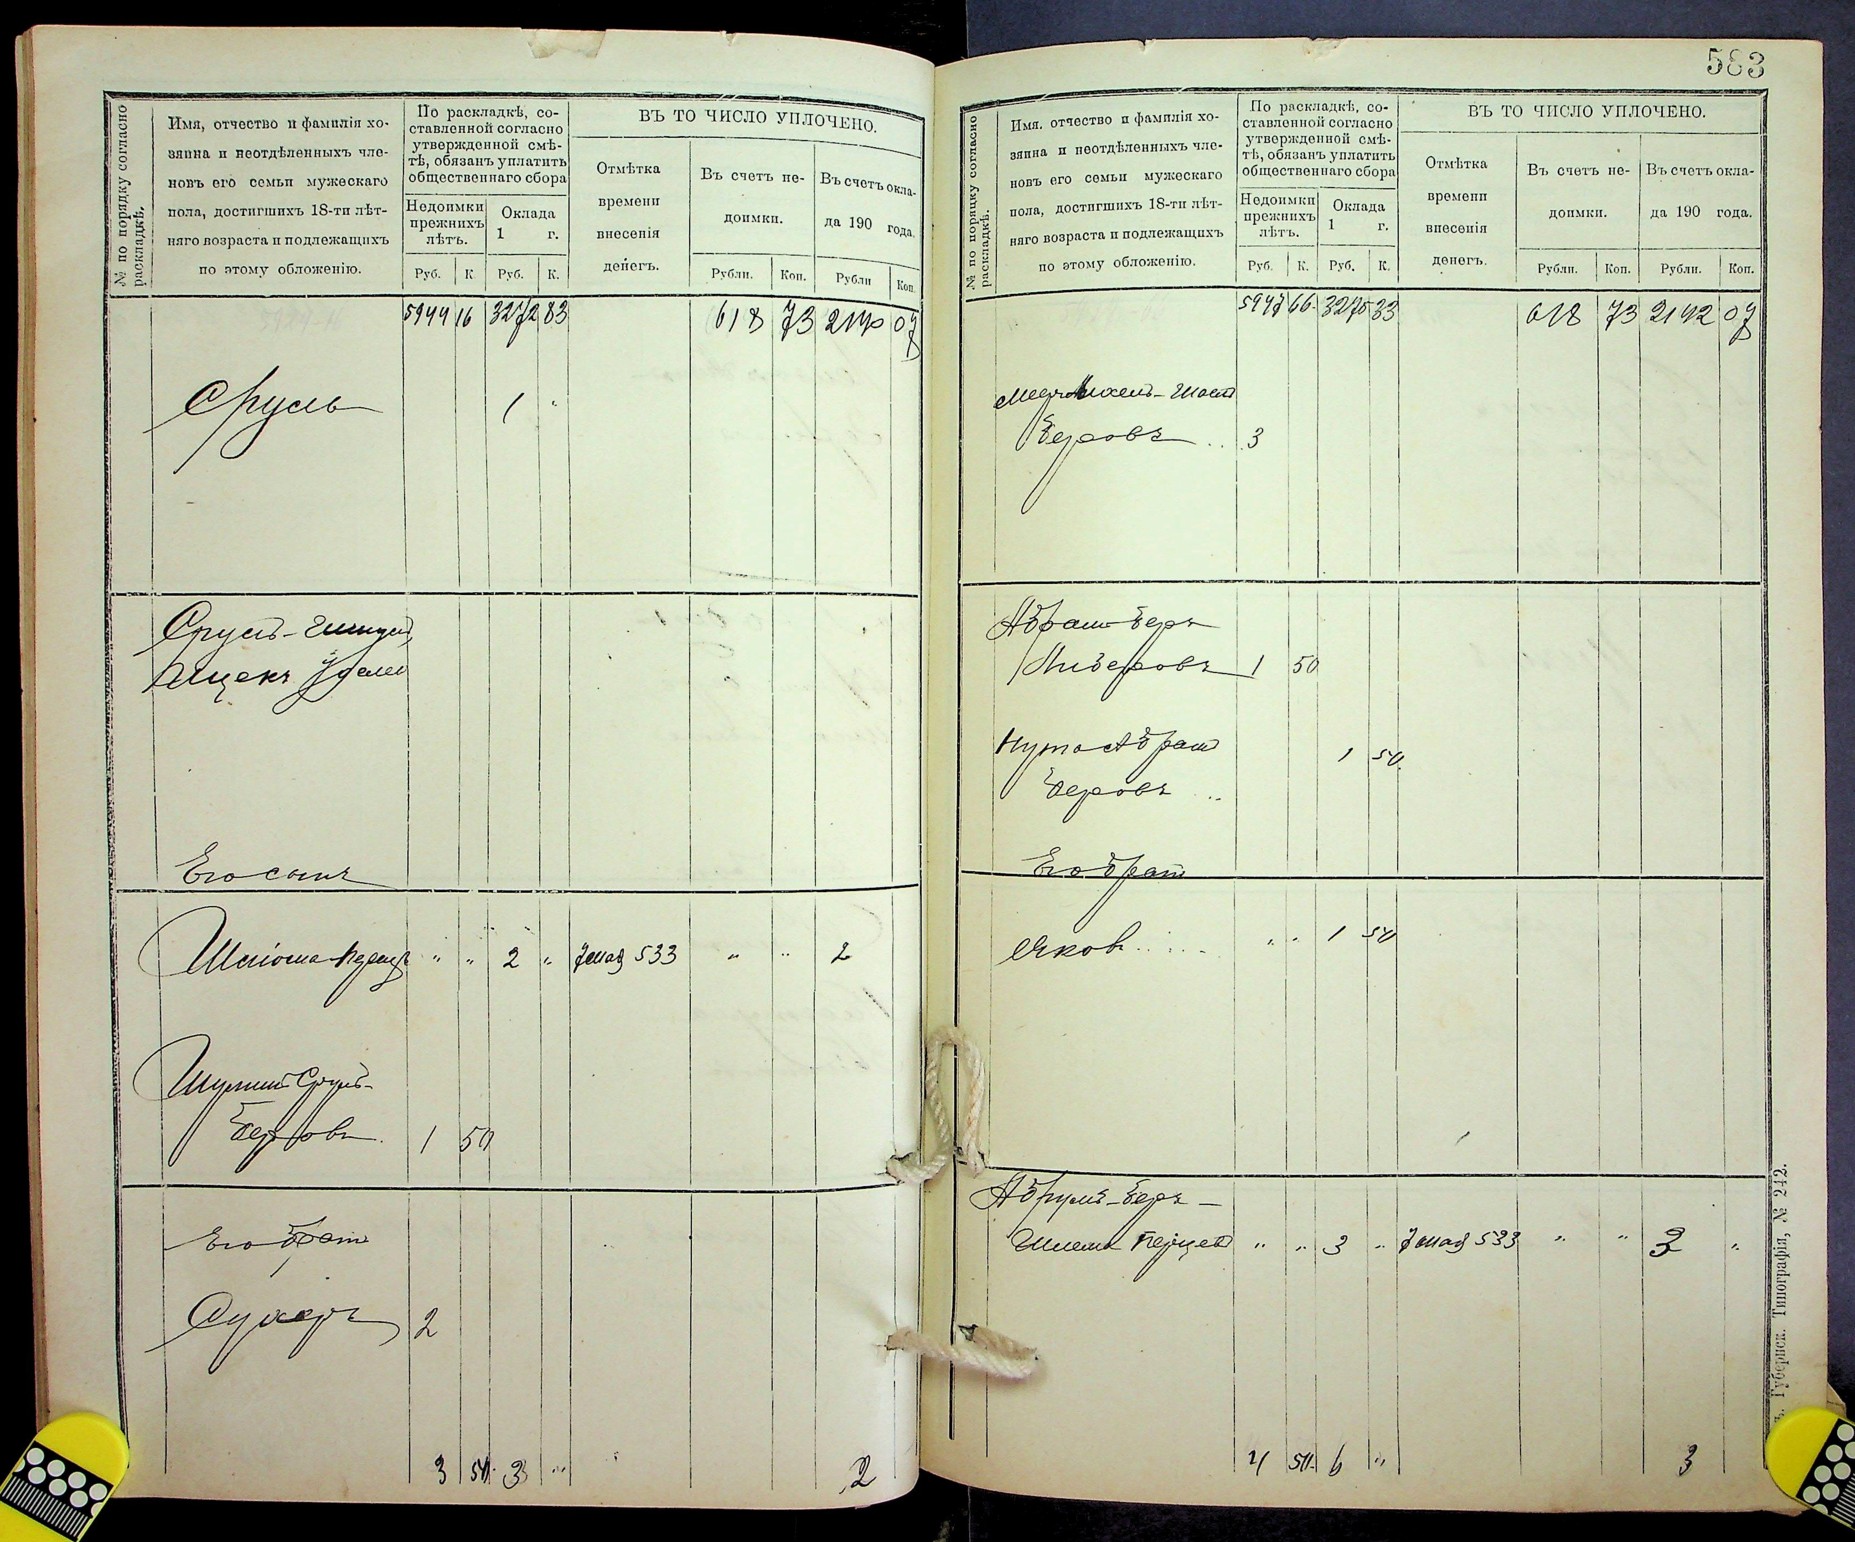 № по порядку согласно
раскладкѣ.
Имя, отчество и фамилія хо-
зяина и неотдѣленныхъ чле-
новъ его семьи мужескаго
пола, достигшихъ 18-ти лѣт-
няго возраста и подлежащихъ
по этому обложенію.
По раскладкѣ, со-
ставленной согласно
утвержденной смѣ-
тѣ, обязанъ уплатить
общественнаго сбора
Недоимки
прежнихъ
лѣтъ.
Оклада
1 г.
Руб. К. Руб. К.
ВЪ ТО ЧИСЛО УПЛОЧЕНО.
Отмѣтка
времени
внесенія
денегъ.
Въ счетъ не-
доимки.
Въ счетъ окла-
да 190 года.
Рубли. Коп. Рубли Коп.
5944 16 3272 83 618 73 2140 07
Сруль 1 "
Сруль-
Ицекъ
Его сынъ
" " 2 " 7 мая 533 " " 2
Сруль-
Беровъ 1 50
Его братъ
Сухеръ 2
3 50 3 " 2
583
№ по порядку согласно
раскладкѣ.
Имя, отчество и фамилія хо-
зяина и неотдѣленныхъ чле-
новъ его семьи мужескаго
пола, достигшихъ 18-ти лѣт-
няго возраста и подлежащихъ
по этому обложенію.
По раскладкѣ, со-
ставленной согласно
утвержденной смѣ-
тѣ, обязанъ уплатить
общественнаго сбора
Недоимки
прежнихъ
лѣтъ.
Оклада
1 г.
Руб. К. Руб. К.
ВЪ ТО ЧИСЛО УПЛОЧЕНО.
Отмѣтка
времени
внесенія
денегъ.
Въ счетъ не-
доимки.
Въ счетъ окла-
да 190 года.
Рубли. Коп. Рубли. Коп.
5947 66 3275 83 618 73 2142 07
Беровъ 3
Абрамъ-Беръ
Либеровъ 1 50
Нута Абрам
Беровъ 1 50
Его братъ
Янковъ " " 1 50
Абрумъ-Беръ-
Шлема Перцев " " 3 " 7 мая 533 " " 3 "
4 50 6 " 3
Губернск. Типографія, № 242.